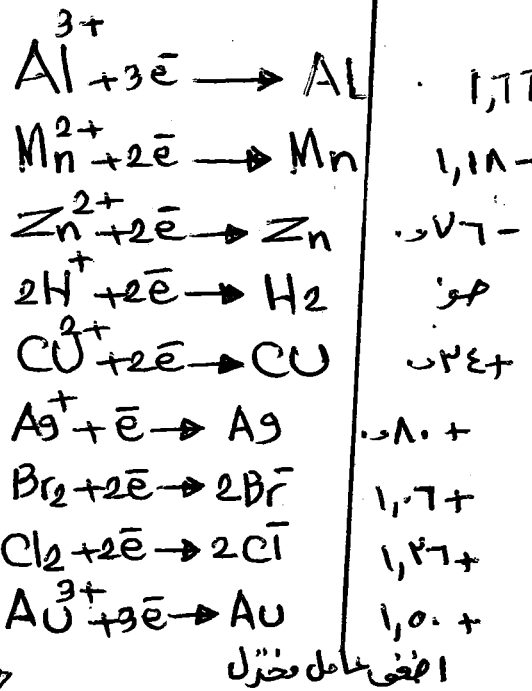 Al³⁺ + 3e⁻ → Al ١,٦٦
Mn²⁺ + 2e⁻ → Mn ١,١٨-
Zn²⁺ + 2e⁻ → Zn ٠,٧٦-
2H⁺ + 2e⁻ → H2 صفر
Cu²⁺ + 2e⁻ → Cu ٠,٣٤+
Ag⁺ + e⁻ → Ag ٠,٨٠+
Br2 + 2e⁻ → 2Br⁻ ١,٠٦+
Cl2 + 2e⁻ → 2Cl⁻ ١,٣٦+
Au³⁺ + 3e⁻ → Au ١,٥٠+
اضعف عامل مختزل